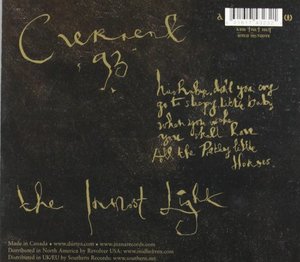 Current
93
Hushabye, don't you cry
go to sleepy little baby
when you wake
you shall have
All the Pretty little
Horses.
the Inmost Light
Made in Canada •
Distributed in North America by Revolver USA.
Distributed in UK/EU by Southern Records. www.southern.net